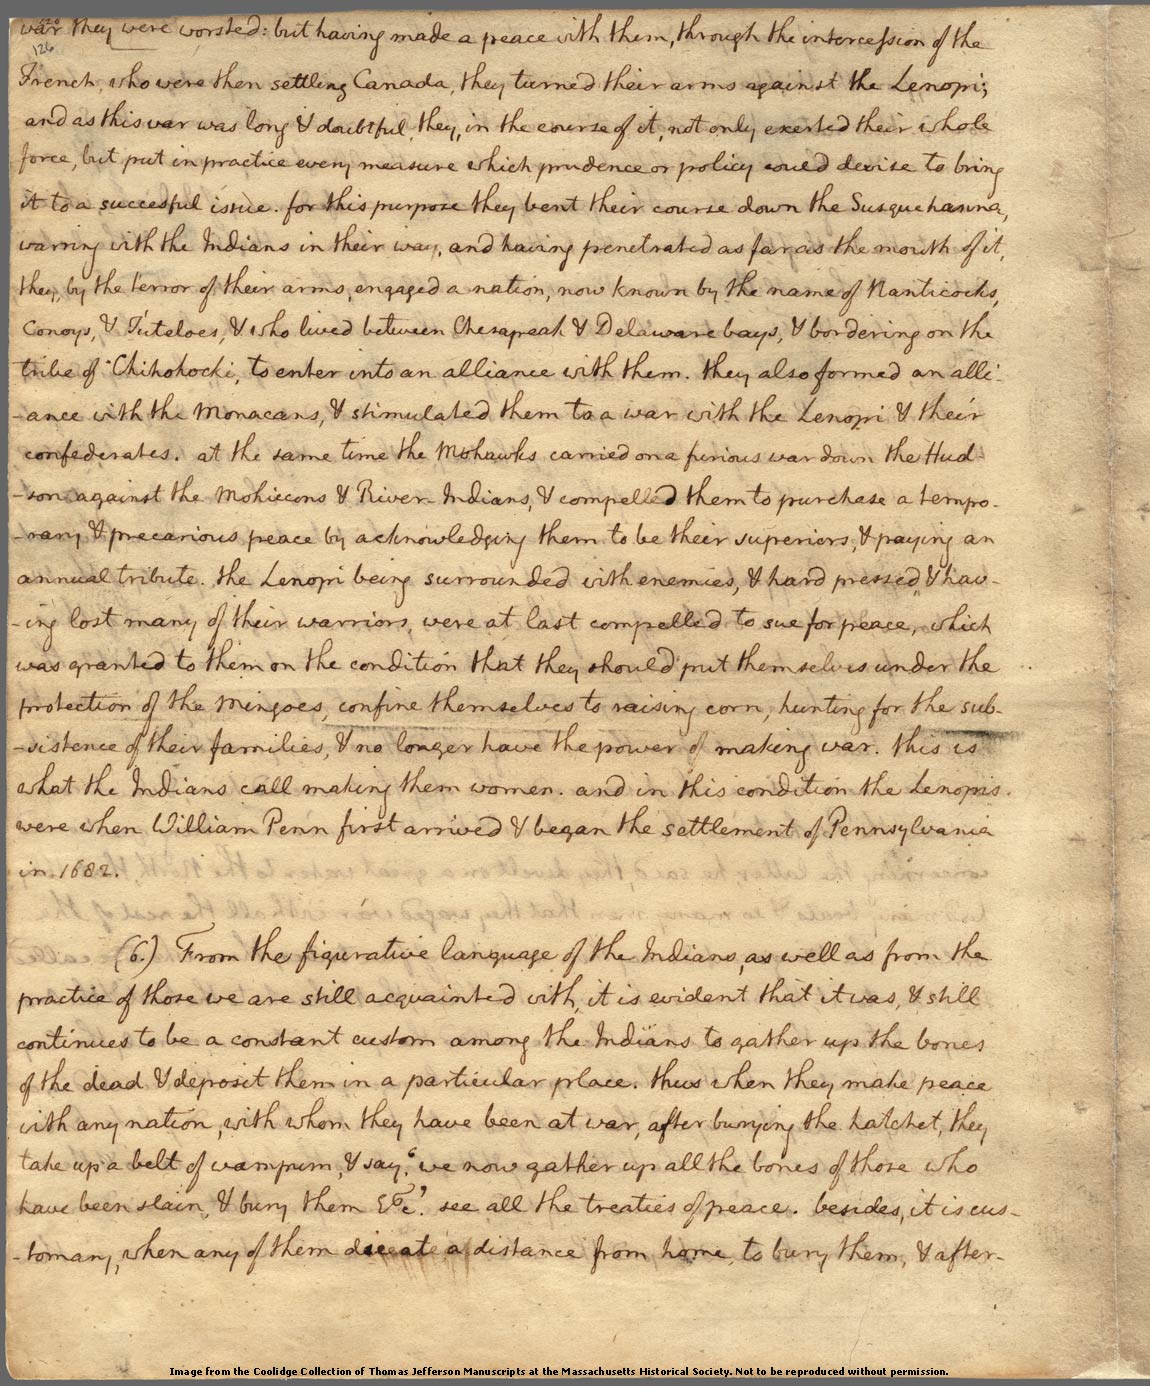 war they were worsted: but having made a peace with them, through the intercession of the
126
French, who were then settling Canada, they turned their arms against the Lenopi;
and as this war was long & doubtful, they, in the course of it, not only exerted their whole
force, but put in practice every measure which prudence or policy could devise to bring
it to a succesful issue. for this purpose they bent their course down the Susquehanna,
warring with the Indians in their way, and having penetrated as far as the mouth of it,
they, by the terror of their arms, engaged a nation, now known by the name of Nanticocks,
Conoys, & Tuteloes, & who lived between Chesapeak & Delaware bays, & bordering on the
tribe of Chihohocki, to enter into an alliance with them. they also formed an alli-
-ance with the Monacans, & stimulated them to a war with the Lenopi & their
confederates. at the same time the Mohawks carried on a furious war down the Hud-
-son against the Mohiccons & River-Indians, & compelled them to purchase a tempo-
-rary & precarious peace by acknowledging them to be their superiors, & paying an
annual tribute. the Lenopi being surrounded with enemies, & hard pressed, & hav-
-ing lost many of their warriors, were at last compelled to sue for peace, which
was granted to them on the condition that they should put themselves under the
protection of the Mingoes, confine themselves to raising corn, hunting for the sub-
-sistence of their families, & no longer have the power of making war. this is
what the Indians call making them women. and in this condition the Lenopis
were when William Penn first arrived & began the settlement of Pennsylvania
in 1682.
(6.) From the figurative language of the Indians, as well as from the
practice of those we are still acquainted with, it is evident that it was, & still
continues to be a constant custom among the Indians to gather up the bones
of the dead & deposit them in a particular place. thus when they make peace
with any nation, with whom they have been at war, after burying the hatchet, they
take up a belt of wampum, & say, 'we now gather up all the bones of those who
have been slain, & bury them &c.' see all the treaties of peace. besides, it is cus-
-tomary, when any of them die at a distance from home, to bury them, & after-
Image from the Coolidge Collection of Thomas Jefferson Manuscripts at the Massachusetts Historical Society. Not to be reproduced without permission.